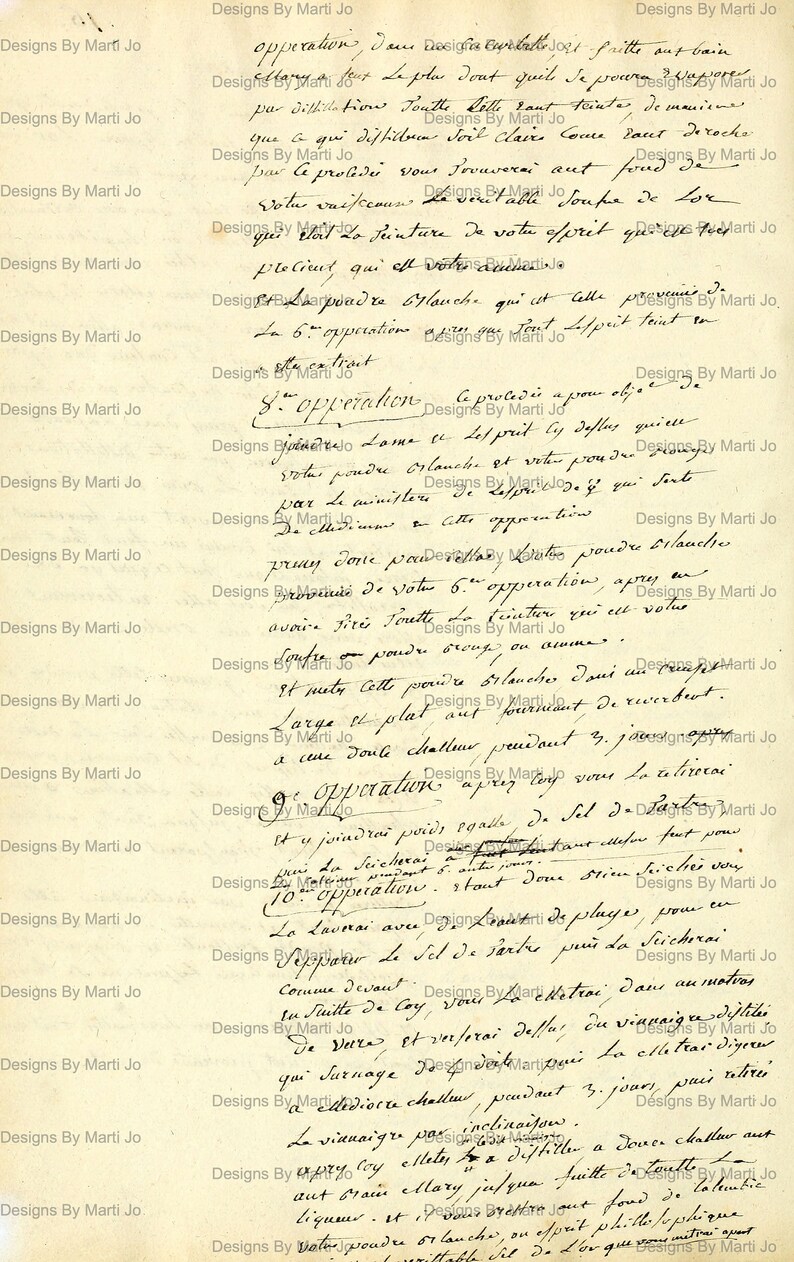 opperation, dans un Cucurbitte, et faitte aut bain
Mary a feux Le plus dout quils Se pourra Evaporer
par distillation Toutte Cette Eaut teinte, de maniere
que Ce qui distillera Soit Claire Come Eaut de roche
par Ce procedés vous Trouverai aut fond de
votre vaisceaux Le veritable Soufre de Lor
qui etoit La Teinture de votre esprit qui est tres
precieut, qui est votre amme.
et La poudre Blanche qui est Celle provenüe de
La 6.en opperation apres que Tout Lesprit teint en
a ette extrait
8.en opperation Ce procedés a pour objet de
joindre Lame et Lesprit Cy dessus qui est
votre poudre Blanche et votre poudre Rouge
par Le ministere de Lesprit de ☿ qui Serts
De Medium en Cette opperation
prenes donc pour Cella, Votre poudre Blanche
provenüe de votre 6.en opperation, apres en
avoire Tirés Toutte La teinture qui est votre
Soufre ou poudre Rouge, ou amme.
et metes Cette poudre Blanche dans un Creuset
Large et plat, aut fourniaut, de reverbert.
a une douce challeur, pendant 3. jours. apres
9.e opperation apres Coy vous La retirerai
et y joindrai poids egalle de Sel de Tartre,
puis La Seicherai a aut Mesme feut pour
La Calciner pendant 6. autre jours.
10.en opperation. etant donc Bien Seichés vous
La Laverai avec, de Leaut de pluye, pour en
Sepparer Le Sel de Tartre puis La Seicherai
comme devant.
en Suitte de Coy, vous La Metrai, dans un matras
De verre, et verserai dessus, du vinnaigre distilés
qui Surnage de 4 doits. puis La Metrai digerer
a Mediocre challeur, pendant 3. jours, puis retirés
Le vinnaigre par inclinaison.
apres Coy Metes a distiller, a douce challeur aut
aut Bain Mary, jusqua fuitte de toutte La
liqueur. et il vous restera aut fond de lalembic
votre poudre Blanche, ou esprit phillosophique
verittable Sel de L'or que vous metrai apart
Designs By Marti Jo